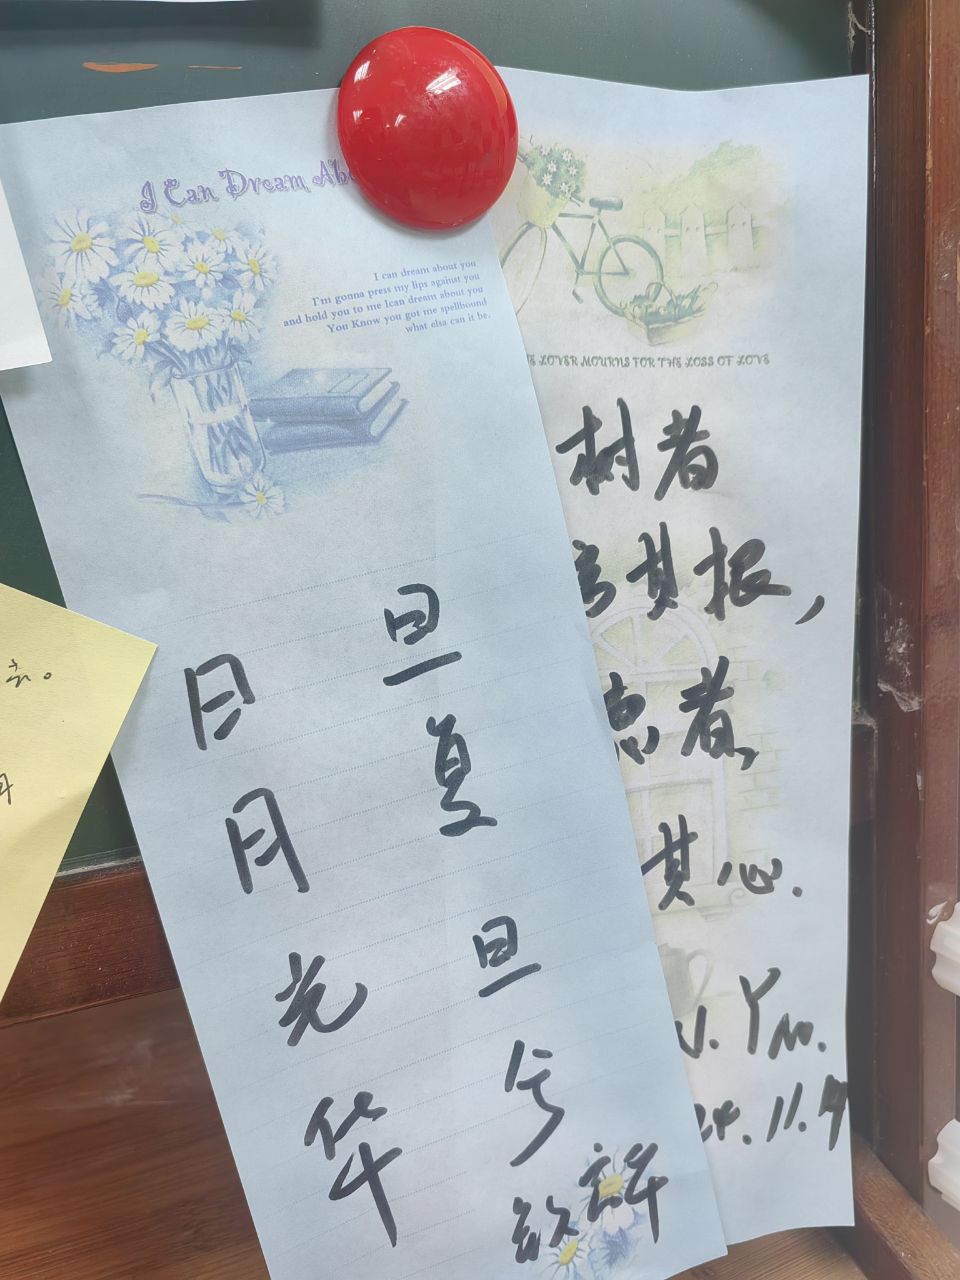 I Can Dream Abo
I can dream about you
I'm gonna press my lips against you
and hold you to me Ican dream about you
You Know you got me spellbound
what elsa can it be.
日月光华
旦复旦兮
E LOVER MOURNS FOR THE LOSS OF LOVE
树者
其根，
者
其心.
24.11.9
去。